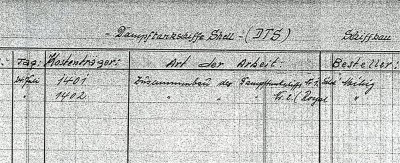 - Dampftankschiffe Shell - (DTS) Schiffbau
Tag: Kostenträger: Art der Arbeit: Besteller:
1401 Zusammenbau des Dampftankschiffs Nr. 1
" 1402 " " " Nr. 2 (Royal "